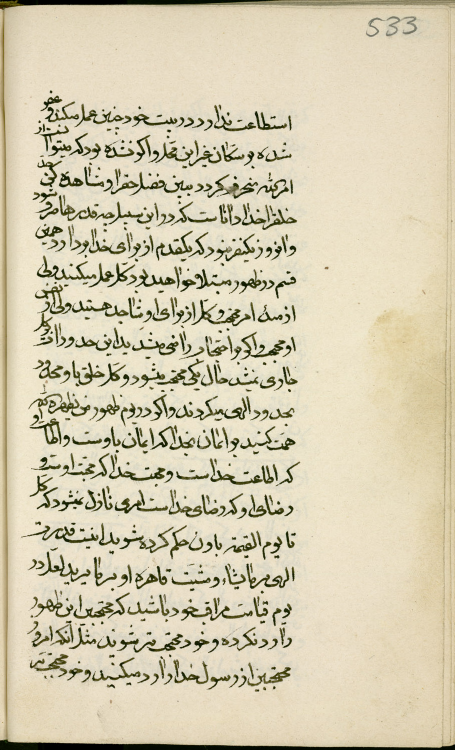 533
استطاعت ندارد در بیت خود چنین عمل میکند و عفو
شده بر سکان غیر این محل و اگر نشده بود که میتوا
امر الله منحرف گردد ببین فضل حق را و مشاهده کن
خلق را خدا دانا است که در این سبیل چه قدرها صرف شود
و امروز یکنفر نبود که یکقدم از برای خدا بردارد همین
قسم در ظهور مبتلا خواهید بود کل عمل میکنند ولی
از مبدء امر محتجب و کل از برای او ساجد هستید ولی از
او محتجب و اگر بر احتجاب راضی میشدید این حدود
جاری نمیشد حال که محتجب میشود و کل خلق با و
بحدود الهی میکردند و اگر در یوم ظهور من یظهره الله
همت کنید بر ایمان بخدا که ایمان باوست و اطاعت او
که اطاعت خداست و محبت خدا که محبت اوست و
رضای او که رضای خداست امری نازل نمیشود که کل
تا یوم القیمة باون حکم کرده شوید اینست قدرت
الهی در ما یشاء و مشیت قاهره او در ما یرید لعل در
یوم قیامت مراقب خود باشید که محتجبین این ظهور
را رد نکرده و خود محتجب تر شوند مثل آنکه امروز
محتجبین از رسول خدا را رد میکنید و خود محتجب تر